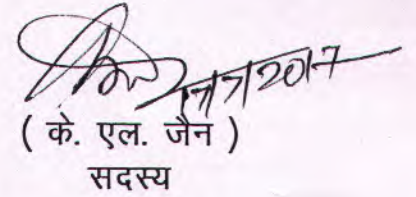 7/7/2017
( के. एल. जैन )
सदस्य